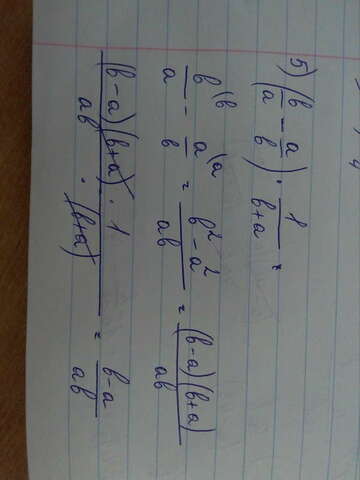 5) (b/a - a/b) · 1/(b+a) =
b^(b/a - a^(a/b = (b² - a²)/ab = (b-a)(b+a)/ab
(b-a)(b+a) · 1/ab · (b+a) = (b-a)/ab